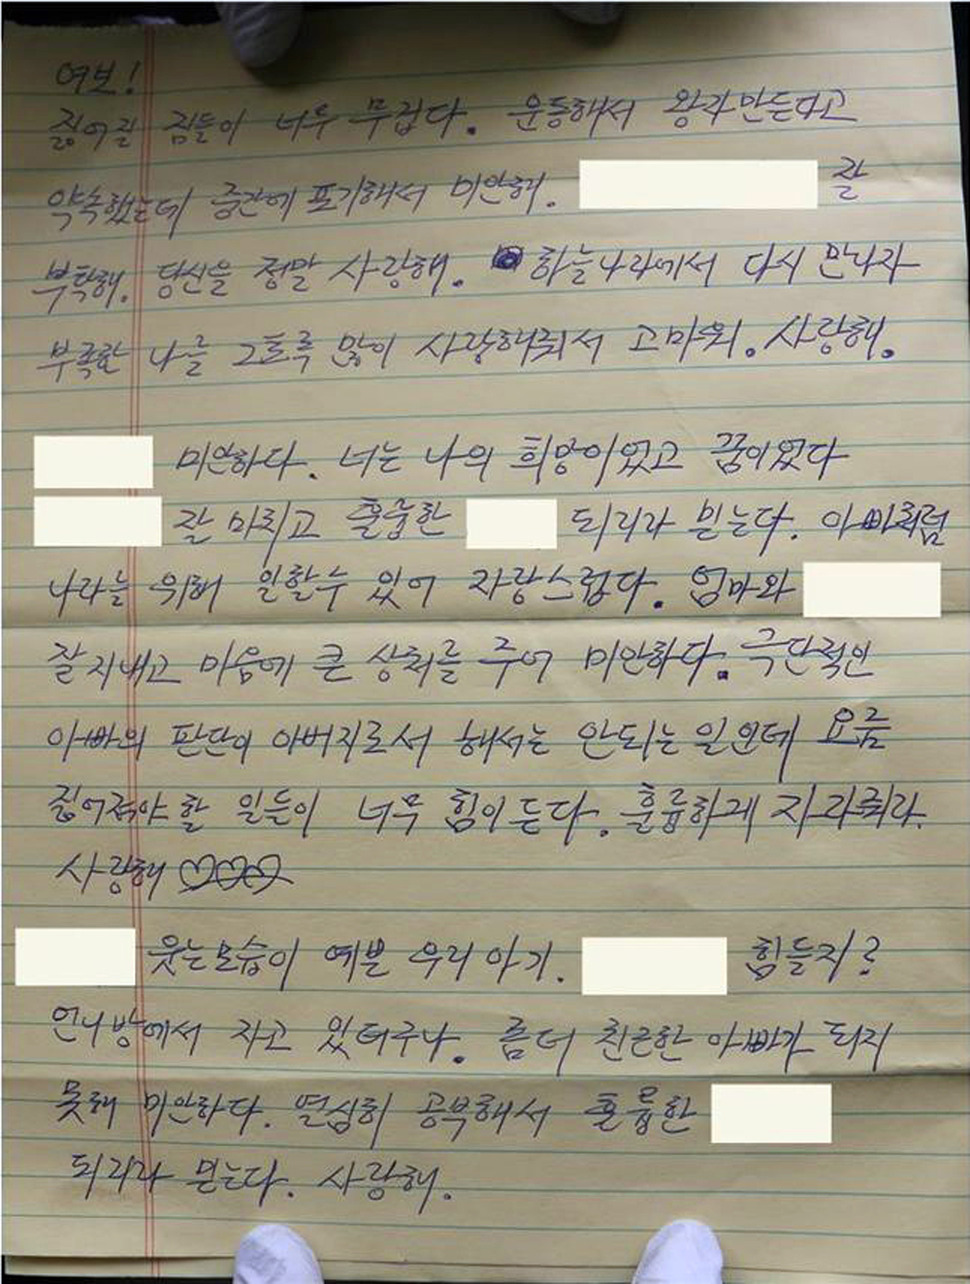 여보!
짊어질 짐들이 너무 무겁다. 운동해서 왕자만든다고
약속했는데 중간에 포기해서 미안해. 잘
부탁해. 당신을 정말 사랑해. 하늘나라에서 다시 만나자
부족한 나를 그토록 많이 사랑해줘서 고마워. 사랑해.
미안하다. 너는 나의 희망이었고 꿈이었다
잘 마치고 훌륭한 되리라 믿는다. 아빠처럼
나라를 위해 일할수 있어 자랑스럽다. 엄마와
잘 지내고 마음에 큰 상처를 주어 미안하다. 극단적인
아빠의 판단이 아버지로서 해서는 안되는 일인데 요즘
짊어져야 할 일들이 너무 힘이 든다. 훌륭하게 자라줘라.
사랑해 ♡♡♡
웃는모습이 예쁜 우리 아기. 힘들지?
언니방에서 자고 있더구나. 좀더 친근한 아빠가 되지
못해 미안하다. 열심히 공부해서 훌륭한
되리라 믿는다. 사랑해.